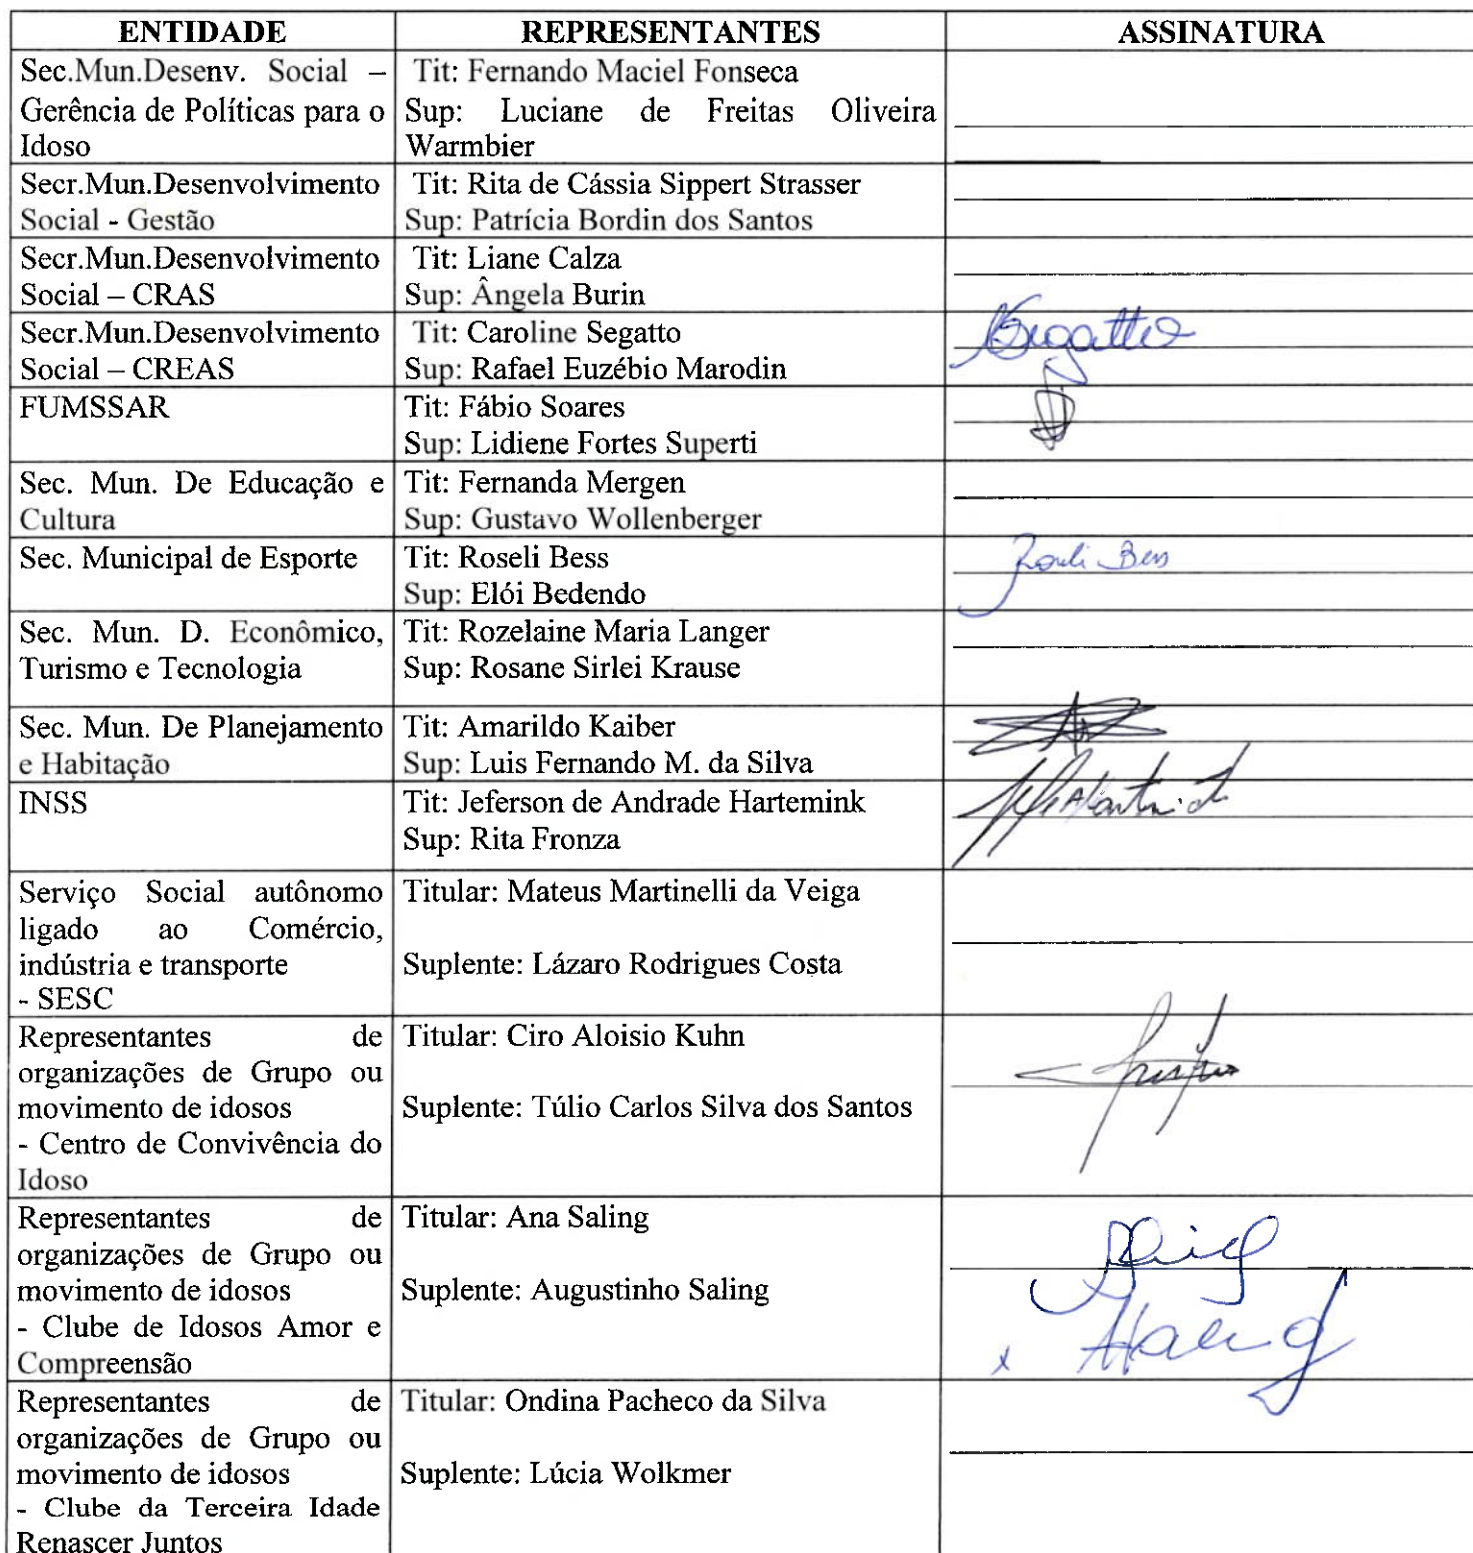 ENTIDADE REPRESENTANTES ASSINATURA
Sec.Mun.Desenv. Social –
Gerência de Políticas para o
Idoso
Tit: Fernando Maciel Fonseca
Sup: Luciane de Freitas Oliveira
Warmbier
Secr.Mun.Desenvolvimento
Social - Gestão
Tit: Rita de Cássia Sippert Strasser
Sup: Patrícia Bordin dos Santos
Secr.Mun.Desenvolvimento
Social – CRAS
Tit: Liane Calza
Sup: Ângela Burin
Secr.Mun.Desenvolvimento
Social – CREAS
Tit: Caroline Segatto
Sup: Rafael Euzébio Marodin
Segatto
FUMSSAR
Tit: Fábio Soares
Sup: Lidiene Fortes Superti
Sec. Mun. De Educação e
Cultura
Tit: Fernanda Mergen
Sup: Gustavo Wollenberger
Sec. Municipal de Esporte
Tit: Roseli Bess
Sup: Elói Bedendo
Roseli Bess
Sec. Mun. D. Econômico,
Turismo e Tecnologia
Tit: Rozelaine Maria Langer
Sup: Rosane Sirlei Krause
Sec. Mun. De Planejamento
e Habitação
Tit: Amarildo Kaiber
Sup: Luis Fernando M. da Silva
INSS
Tit: Jeferson de Andrade Hartemink
Sup: Rita Fronza
Serviço Social autônomo
ligado ao Comércio,
indústria e transporte
- SESC
Titular: Mateus Martinelli da Veiga
Suplente: Lázaro Rodrigues Costa
Representantes de
organizações de Grupo ou
movimento de idosos
- Centro de Convivência do
Idoso
Titular: Ciro Aloisio Kuhn
Suplente: Túlio Carlos Silva dos Santos
Representantes de
organizações de Grupo ou
movimento de idosos
- Clube de Idosos Amor e
Compreensão
Titular: Ana Saling
Suplente: Augustinho Saling
x
Representantes de
organizações de Grupo ou
movimento de idosos
- Clube da Terceira Idade
Renascer Juntos
Titular: Ondina Pacheco da Silva
Suplente: Lúcia Wolkmer